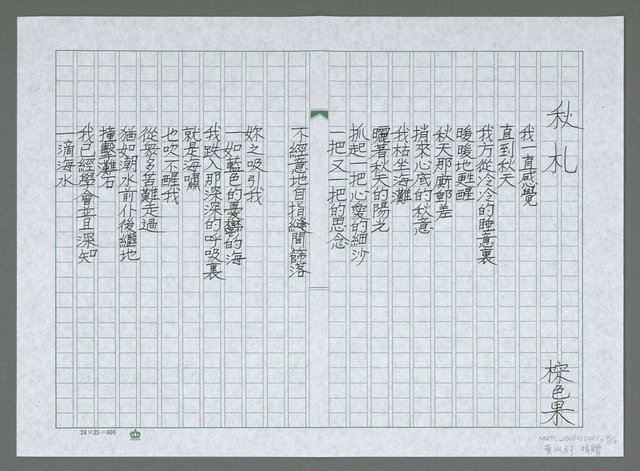 秋札
棕色果
我一直感覺
直到秋天
我方從冷冷的睡意裏
暖暖地甦醒
秋天那廝郵差
捎來心底的秋意
我枯坐海灘
曬著秋天的陽光
抓起一把心愛的細沙
一把又一把的思念
不經意地自指縫間篩落
妳之吸引我
一如藍色的憂鬱的海
我跌入那深深的呼吸裏
就是海嘯
也吹不醒我
從眾多苦難走過
猶如潮水前仆後繼地
撞擊灘石
我已經學會並且深知
一滴海水
24×25=600